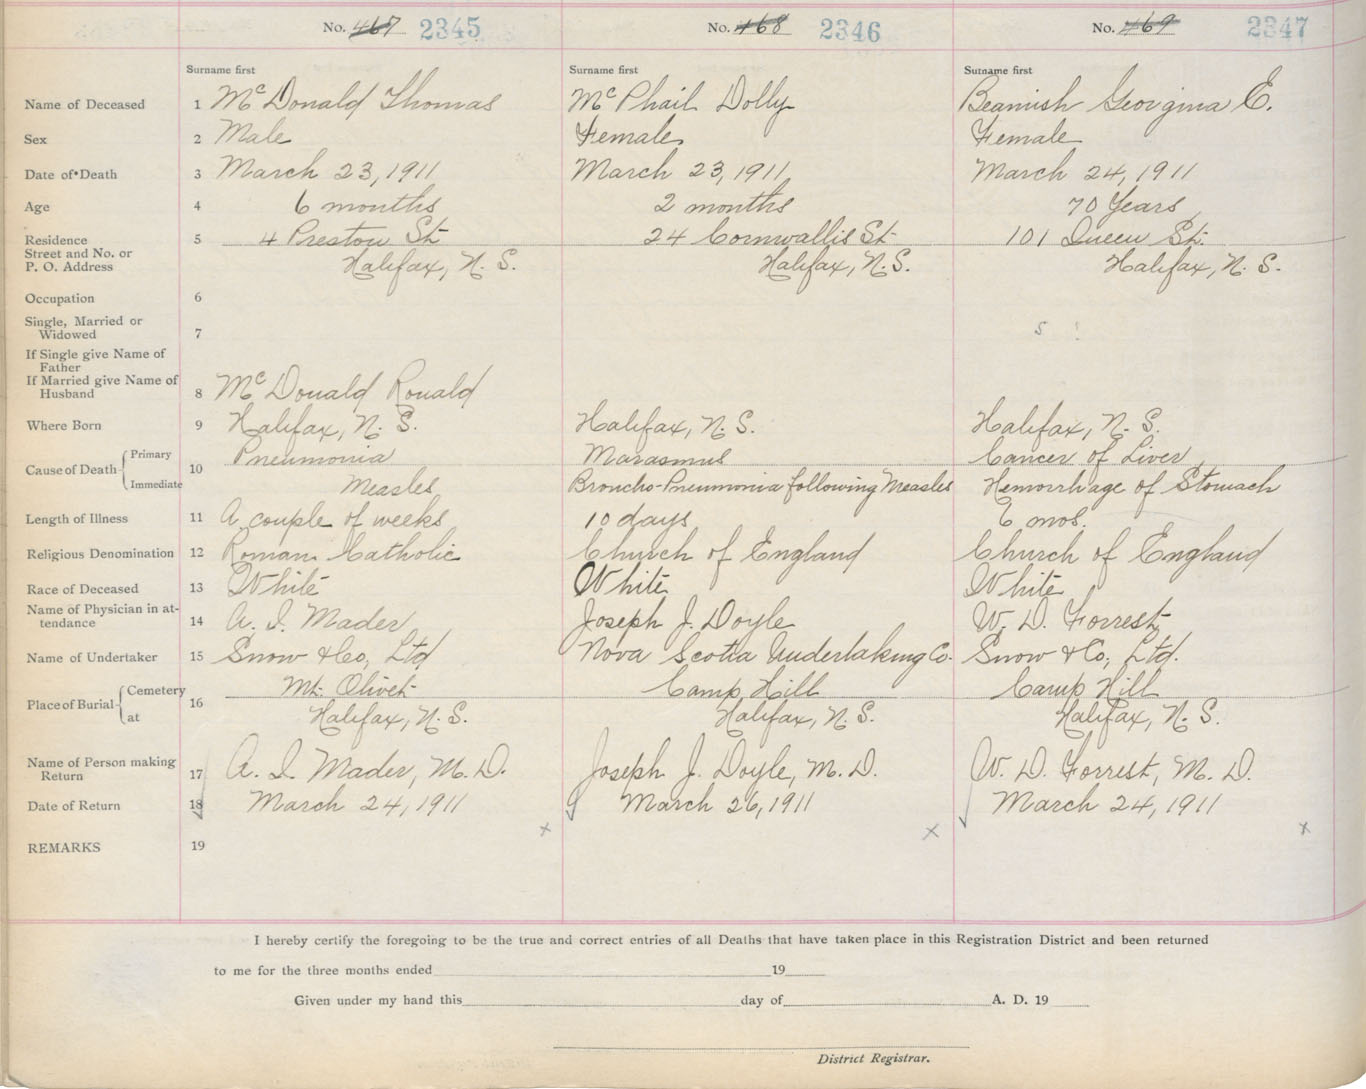 No. 467 2345 No. 468 2346 No. 469 2347
Surname first Surname first Surname first
Name of Deceased 1 McDonald Thomas McPhail Dolly Beamish Georgina E.
Sex 2 Male Female Female
Date of Death 3 March 23, 1911 March 23, 1911 March 24, 1911
Age 4 6 months 2 months 70 Years
Residence 5 4 Preston St. 24 Cornwallis St. 101 Queen St.
Street and No. or
P. O. Address Halifax, N. S. Halifax, N. S. Halifax, N. S.
Occupation 6
Single, Married or
Widowed 7 5
If Single give Name of
Father
If Married give Name of
Husband 8 McDonald Ronald
Where Born 9 Halifax, N. S. Halifax, N. S. Halifax, N. S.
Primary Pneumonia Marasmus Cancer of Liver
Cause of Death 10
Immediate Measles Broncho-Pneumonia following Measles Hemorrhage of Stomach
Length of Illness 11 A couple of weeks 10 days 6 mos.
Religious Denomination 12 Roman Catholic Church of England Church of England
Race of Deceased 13 White White White
Name of Physician in at-
tendance 14 A. I. Mader Joseph J. Doyle W. D. Forrest
Name of Undertaker 15 Snow & Co, Ltd Nova Scotia Undertaking Co. Snow & Co, Ltd.
Cemetery Mt. Olivet Camp Hill Camp Hill
Place of Burial 16
at Halifax, N. S. Halifax, N. S. Halifax, N. S.
Name of Person making
Return 17 A. I. Mader, M. D. Joseph J. Doyle, M. D. W. D. Forrest, M. D.
Date of Return 18 March 24, 1911 March 26, 1911 March 24, 1911
x x x
REMARKS 19
I hereby certify the foregoing to be the true and correct entries of all Deaths that have taken place in this Registration District and been returned
to me for the three months ended 19
Given under my hand this day of A. D. 19
District Registrar.